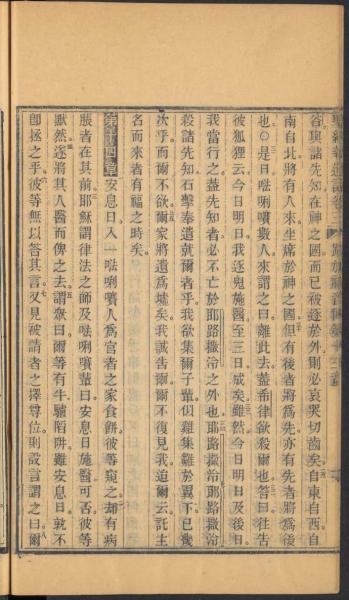 谷與諸先知在神之國而已被逐於外則必哀哭切齒矣自東自西自
南自北將有人來坐席於神之國但有後者將為先亦有先者將為後
也○是日𠵽唎嚬數人來謂之曰離此去蓋希律欲殺爾也答曰往告
彼狐狸云今日明日我逐鬼施醫至三日成矣雖然今日明日及後日
我當行之蓋先知者必不亡於耶路撒冷之外也耶路撒冷耶路撒冷
殺諸先知石擊奉遣就爾者乎我欲集爾子輩似雞集雛於翼下已幾
次乎而爾不欲爾家將遺為墟矣我誠告爾爾不復見我迨爾云託主
名而來者有福之時矣
第十四章安息日入一𠵽唎嚬人為官者之家食餅彼等窺之却有病
脹者在其前耶穌謂律法之師及𠵽唎嚬輩曰安息日施醫可否彼等
默然遂將其人醫而俾之去謂衆曰爾等有牛驢陷阱雖安息日孰不
卽拯之乎彼等無以答其言又見被請者之擇尊位則設言謂之曰爾